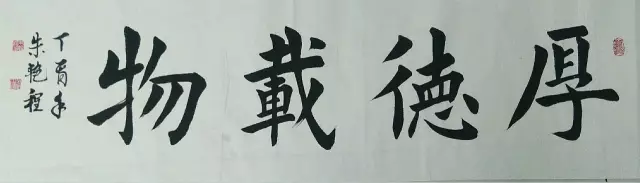 厚德載物
丁酉年
朱艳程